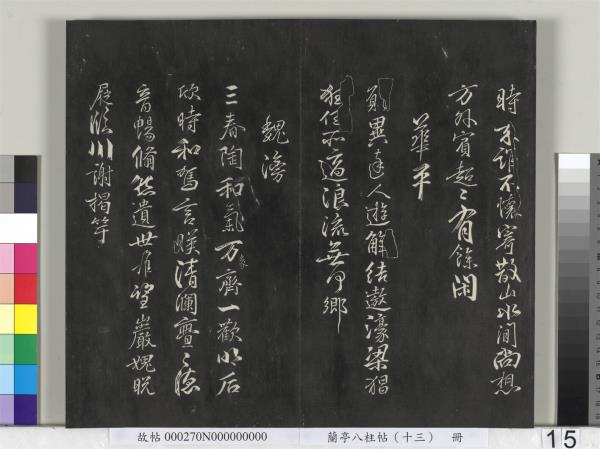 時來誰不懷寄散山水間尚想
方外賓超〻有餘閑
華平
願異達人遊解結遨濠梁猖
狂任所適浪流無何鄉
魏滂
三春陶和氣万象齊一歡明后
欣時和駕言暎清瀾亹〻德
音暢翛然遺世望巖愧脫
屣臨川謝揭竿
故帖 000270N000000000 蘭亭八柱帖(十三) 冊
15